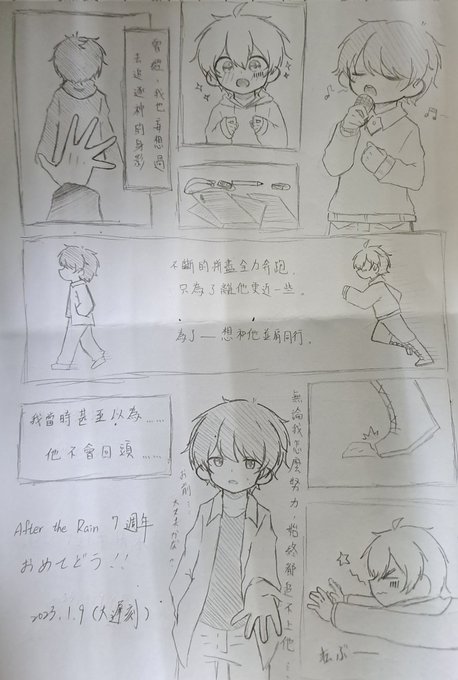 曾經,我也妄想過
去追逐神的身影
不斷的拼盡全力奔跑,
只為了離他更近一些,
為了— 想和他並肩同行。
無論我怎麼努力,始終都追不上他…
転ぶ—
我當時甚至以為……
他不會回頭……
お前…
大丈夫かな?
After the Rain 7週年
おめてどう!!
2023.1.9 (大遅刻)